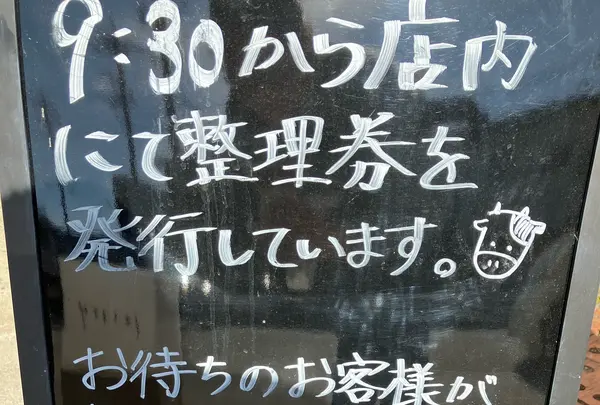 9:30から店内
にて整理券を
発行しています。
お待ちのお客様が